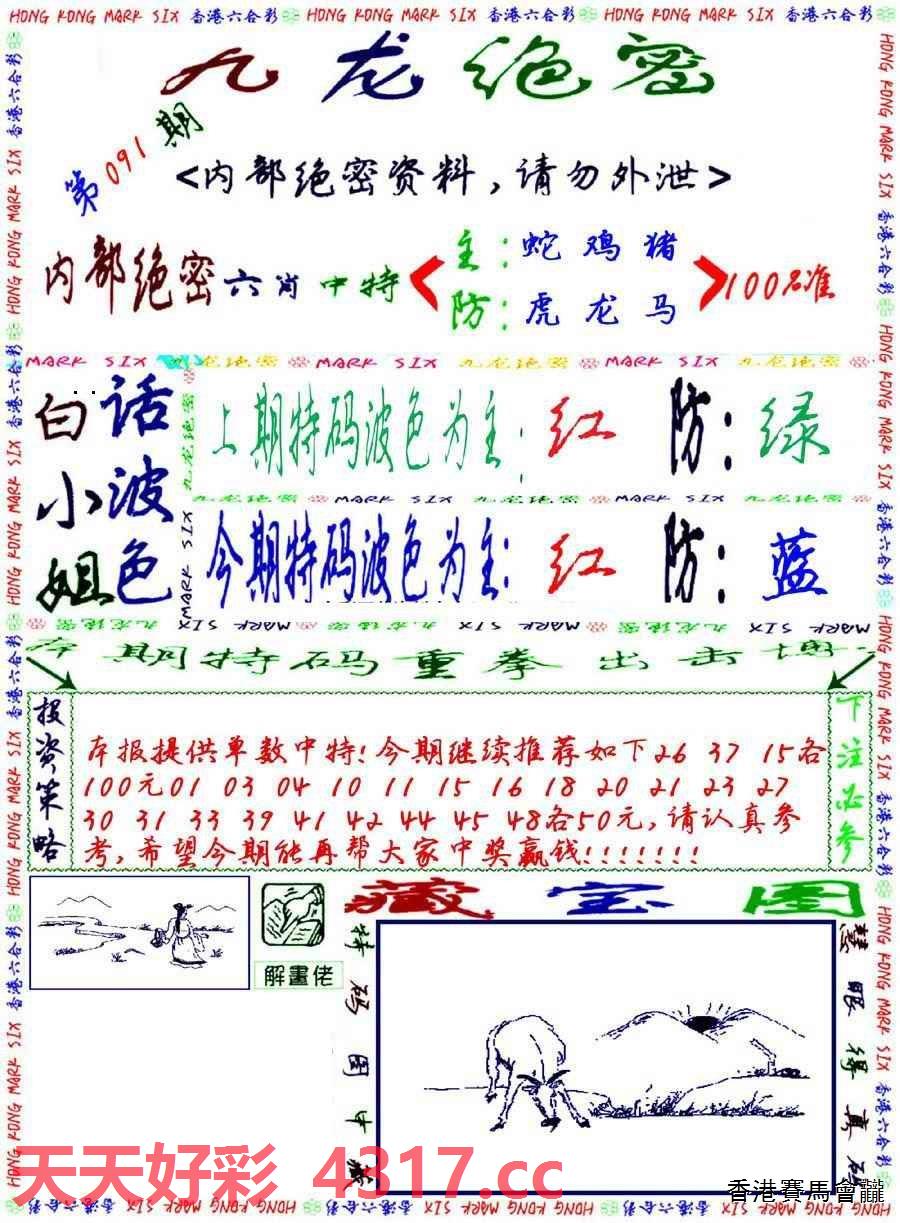 HONG KONG MARK SIX 香港六合彩 HONG KONG MARK SIX 香港六合彩 HONG KONG MARK SIX 香港六合彩
九龙绝密
第091期
<内部绝密资料,请勿外泄>
内部绝密六肖中特
主:蛇鸡猪
防:虎龙马
100%准
MARK SIX 九龙绝密 MARK SIX 九龙绝密 MARK SIX 九龙绝密
白话
小波
姐色
上期特码波色为主:红 防:绿
九龙绝密 MARK SIX 九龙绝密 MARK SIX 九龙绝密
今期特码波色为主:红 防:蓝
九龙绝密 MARK SIX 九龙绝密 MARK SIX 九龙绝密 MARK SIX
本期特码重拳出击
投资策略
本报提供单数中特!今期继续推荐如下26 37 15各
100元01 03 04 10 11 15 16 18 20 21 23 27
30 31 33 39 41 42 44 45 48各50元,请认真参
考,希望今期能再帮大家中奖赢钱!!!!!!!
下注必参
解畫佬
藏宝图
特码图中
慧眼得真
天天好彩 4317.cc
香港賽馬會